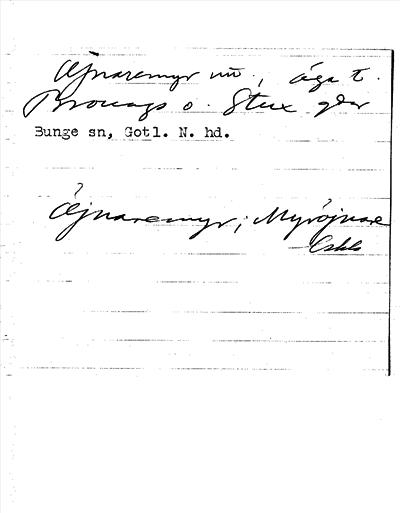 Öjnaremyr nr., äga t.
Brouags o. Stux gdr
Bunge sn, Gotl. N. hd.
Öjnaremyr; Myröjnare